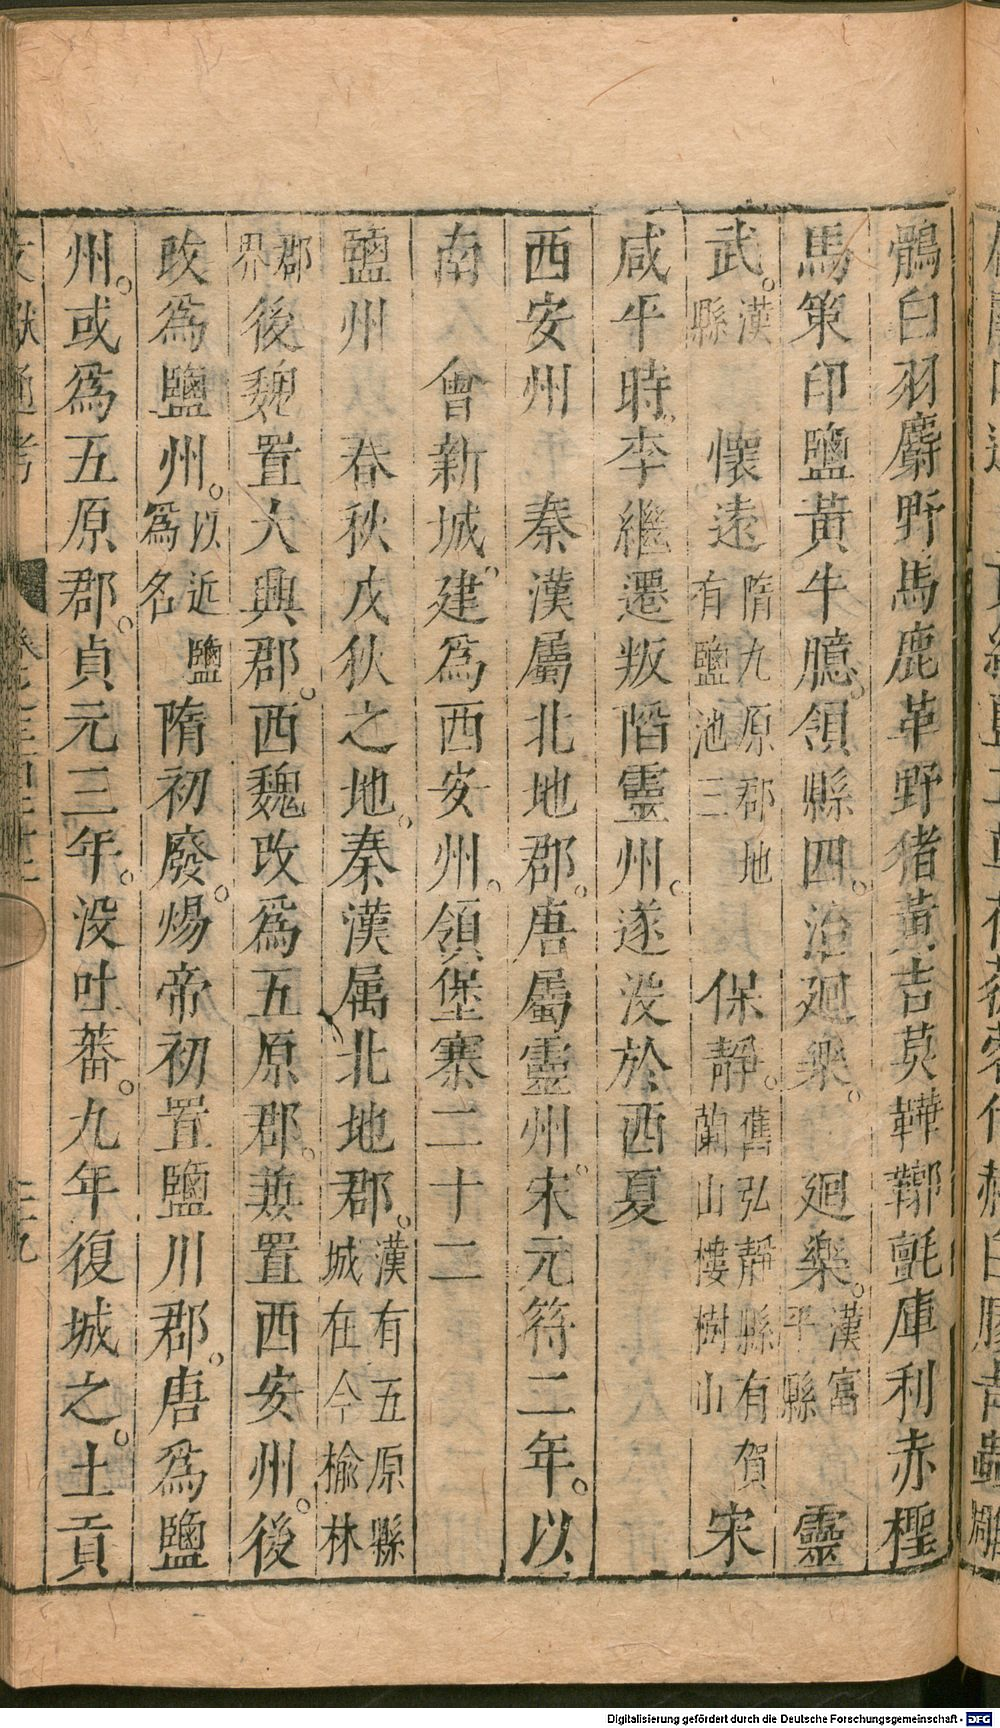 鶻白羽麝野馬鹿革野猪黃吉莫鞾鞹氈庫利赤檉
馬策印鹽黃牛臆領縣四治廻樂 廻樂漢富平縣 靈
武漢縣 懷遠隋九原郡地有鹽池三 保靜舊弘靜縣有賀蘭山樓樹山 宋
咸平時李繼遷叛陷靈州遂没於西夏
西安州 秦漢屬北地郡唐屬靈州宋元符二年以
南 會新城建爲西安州領堡寨二十二
鹽州 春秋戎狄之地秦漢属北地郡漢有五原縣城在今榆林
郡界後魏置大興郡西魏改爲五原郡兼置西安州後
改爲鹽州以近鹽爲名隋初廢煬帝初置鹽川郡唐爲鹽
州或爲五原郡貞元三年没吐蕃九年復城之土貢
文獻通考
Digitalisierung gefördert durch die Deutsche Forschungsgemeinschaft - DFG